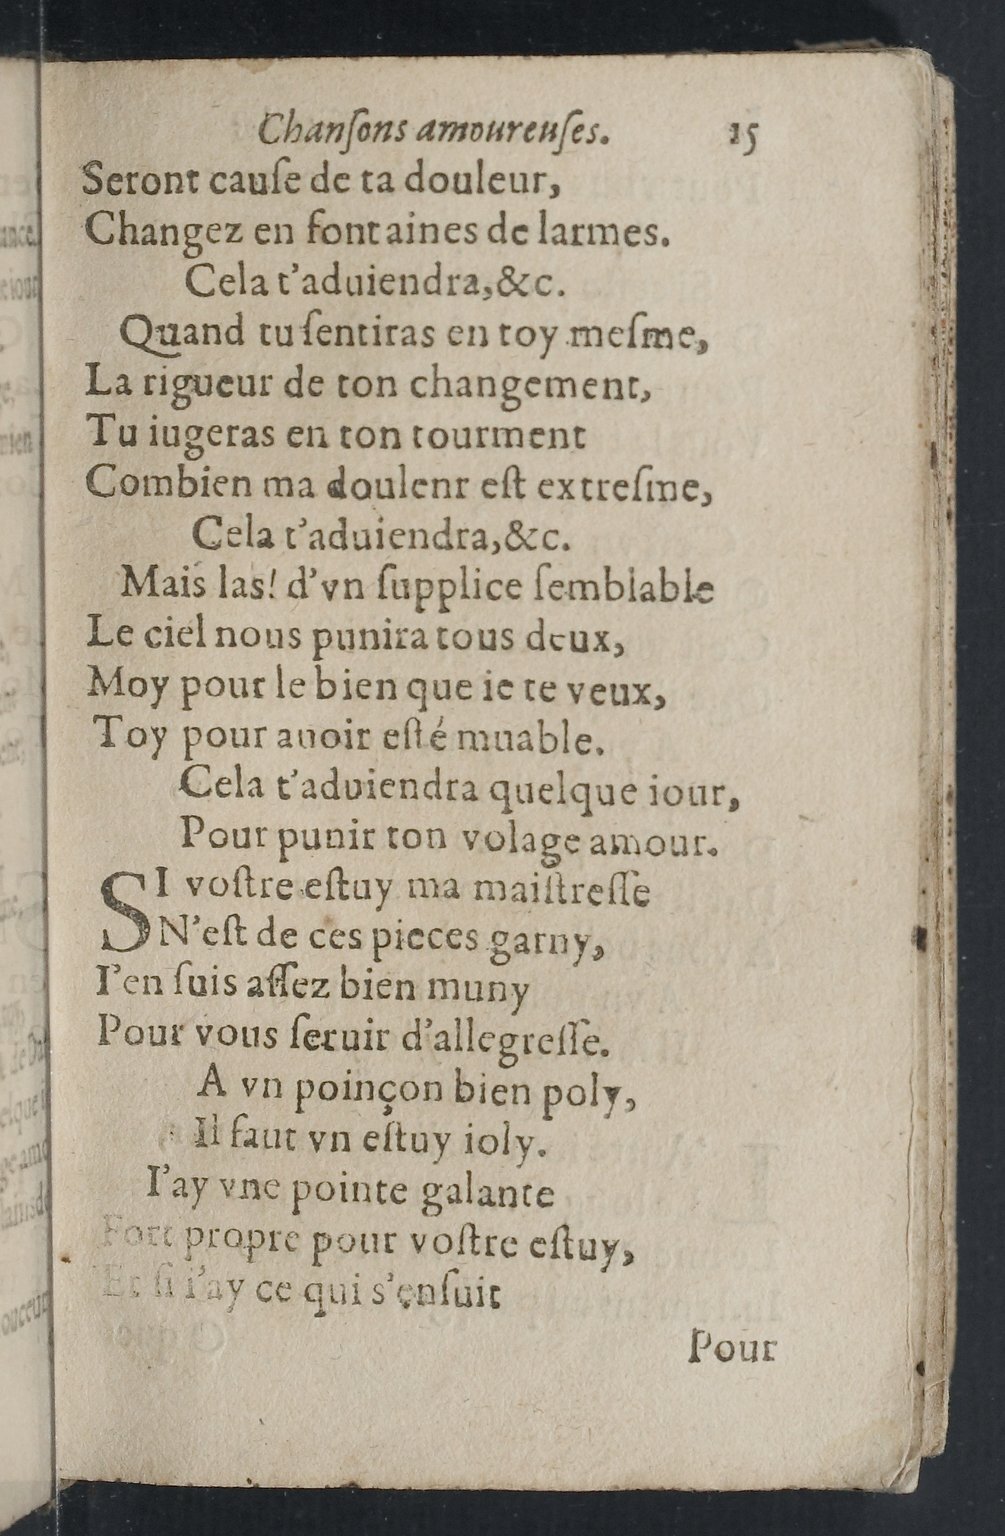 Chanſons amoureuſes. 15
Seront cauſe de ta douleur,
Changez en fontaines de larmes.
Cela t'aduiendra,&c.
Quand tu ſentiras en toy meſme,
La rigueur de ton changement,
Tu iugeras en ton tourment
Combien ma doulenr eſt extreſme,
Cela t'aduiendra,&c.
Mais las! d'vn ſupplice ſemblable
Le ciel nous punira tous deux,
Moy pour le bien que ie te veux,
Toy pour auoir eſté muable.
Cela t'aduiendra quelque iour,
Pour punir ton volage amour.
SI voſtre eſtuy ma maiſtreſſe
N'eſt de ces pieces garny,
I'en ſuis aſſez bien muny
Pour vous ſeruir d'allegreſſe.
A vn poinçon bien poly,
Il faut vn eſtuy ioly.
I'ay vne pointe galante
Fort propre pour voſtre eſtuy,
Et ſi i'ay ce qui s'enſuit
Pour